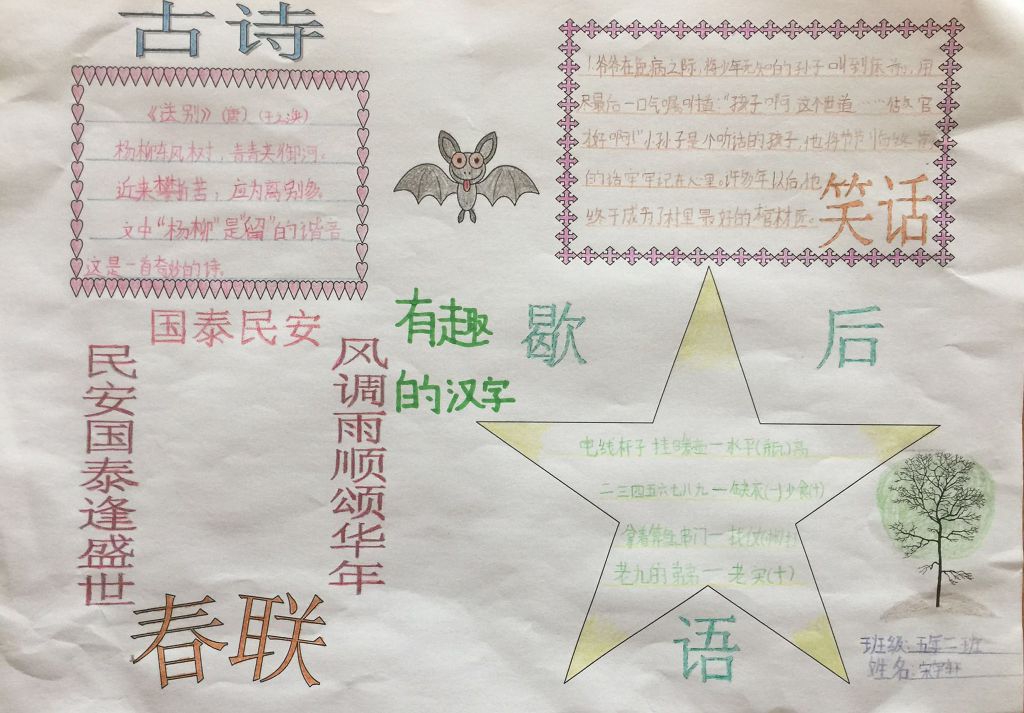 古诗
《送别》(唐)(王之涣)
杨柳东风树，青青夹御河。
近来攀折苦，应为离别多。
文中“杨柳”是“留”的谐音
这是一首奇妙的诗。
爷爷在疾病之际，将少年无知的孙子叫到床前，用
尽最后一口气嘱咐道：“孩子啊 这个世道……官
材啊！”小孙子是个听话的孩子，他将爷爷临终前
的话牢牢记在心里。许多年以后，他
终于成为了村里最好的棺材匠。
笑话
国泰民安
民安国泰逢盛世
风调雨顺颂华年
春联
有趣
的汉字
歇后语
电线杆子挂暖壶—水平(瓶)高
二三四五六七八九—缺衣(一)少食(十)
老九的弟弟—老实(十)
班级：五年二班
姓名：宋